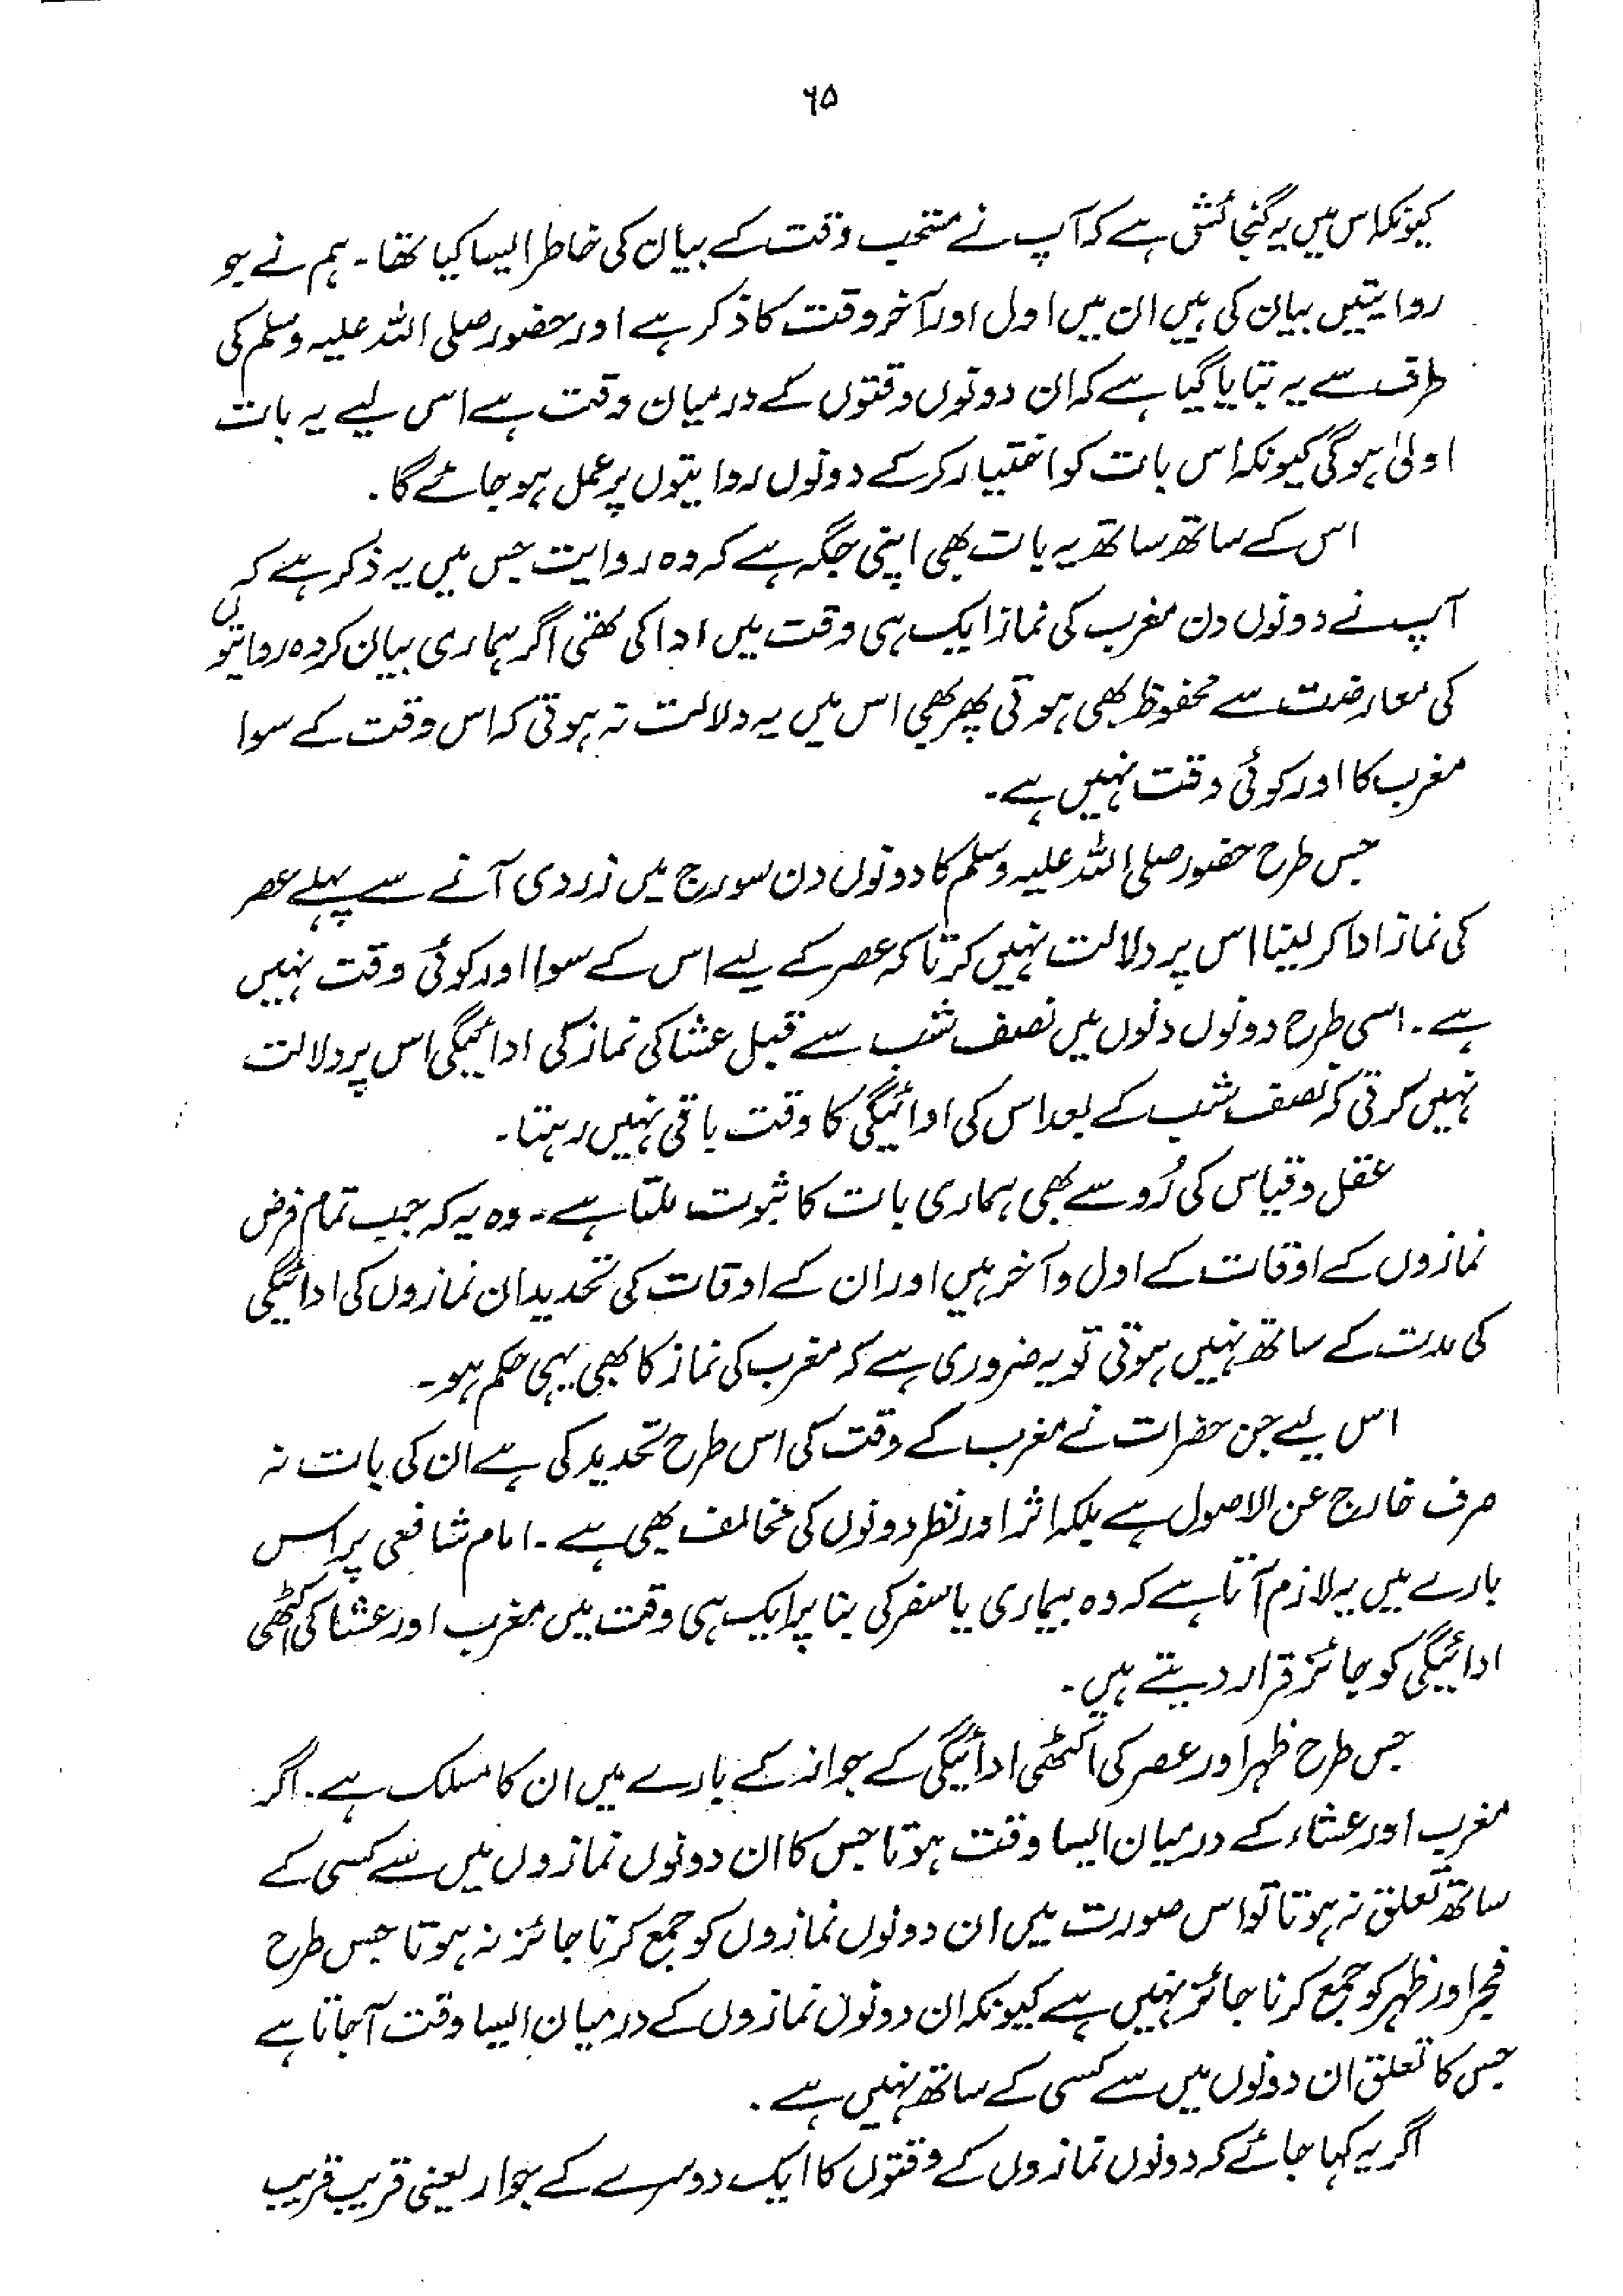 ۶۵
کیونکہ اس میں یہ گنجائش ہے کہ آپ نے مستحب وقت کے بیان کی خاطر ایسا کیا تھا۔ ہم نے جو
روایتیں بیان کی ہیں ان میں اول اور آخر وقت کا ذکر ہے اور حضور صلی اللہ علیہ وسلم کی
طرف سے یہ بتایا گیا ہے کہ ان دونوں وقتوں کے درمیان وقت ہے اس لیے یہ بات
اولیٰ ہوگی کیونکہ اس بات کو اختیار کرکے دونوں روایتوں پر عمل ہو جائے گا۔
اس کے ساتھ ساتھ یہ بات بھی اپنی جگہ ہے کہ وہ روایت جس میں یہ ذکر ہے کہ
آپ نے دونوں دن مغرب کی نماز ایک ہی وقت میں ادا کی تھی اگر ہماری بیان کردہ روایتوں
کی معارضت سے محفوظ بھی ہوتی پھر بھی اس میں یہ دلالت نہ ہوتی کہ اس وقت کے سوا
مغرب کا اور کوئی وقت نہیں ہے۔
جس طرح حضور صلی اللہ علیہ وسلم کا دونوں دن سورج میں زردی آنے سے پہلے عصر
کی نماز ادا کر لینا اس پر دلالت نہیں کرتا کہ عصر کے لیے اس کے سوا اور کوئی وقت نہیں
ہے۔ اسی طرح دونوں دنوں میں نصف شب سے قبل عشا کی نماز کی ادائیگی اس پر دلالت
نہیں کرتی کہ نصف شب کے بعد اس کی ادائیگی کا وقت باقی نہیں رہتا۔
عقل و قیاس کی رُو سے بھی ہماری بات کا ثبوت ملتا ہے۔ وہ یہ کہ جب تمام فرض
نمازوں کے اوقات کے اول و آخر ہیں اور ان کے اوقات کی تحدید ان نمازوں کی ادائیگی
کی مدت کے ساتھ نہیں ہوتی تو یہ ضروری ہے کہ مغرب کی نماز کا بھی یہی حکم ہو۔
اس لیے جن حضرات نے مغرب کے وقت کی اس طرح تحدید کی ہے ان کی بات نہ
صرف خارج عن الاصول ہے بلکہ اثر اور نظر دونوں کی مخالف بھی ہے۔ امام شافعی پر اس
بارے میں یہ لازم آتا ہے کہ وہ بیماری یا سفر کی بنا پر ایک ہی وقت میں مغرب اور عشا کی اکٹھی
ادائیگی کو جائز قرار دیتے ہیں۔
جس طرح ظہر اور عصر کی اکٹھی ادائیگی کے جواز کے بارے میں ان کا مسلک ہے۔ اگر
مغرب اور عشاء کے درمیان ایسا وقت ہوتا جس کا ان دونوں نمازوں میں سے کسی کے
ساتھ تعلق نہ ہوتا تو اس صورت میں ان دونوں نمازوں کو جمع کرنا جائز نہ ہوتا جس طرح
فجر اور ظہر کو جمع کرنا جائز نہیں ہے کیونکہ ان دونوں نمازوں کے درمیان ایسا وقت آجاتا ہے
جس کا تعلق ان دونوں میں سے کسی کے ساتھ نہیں ہے۔
اگر یہ کہا جائے کہ دونوں نمازوں کے وقتوں کا ایک دوسرے کے جوار یعنی قریب قریب